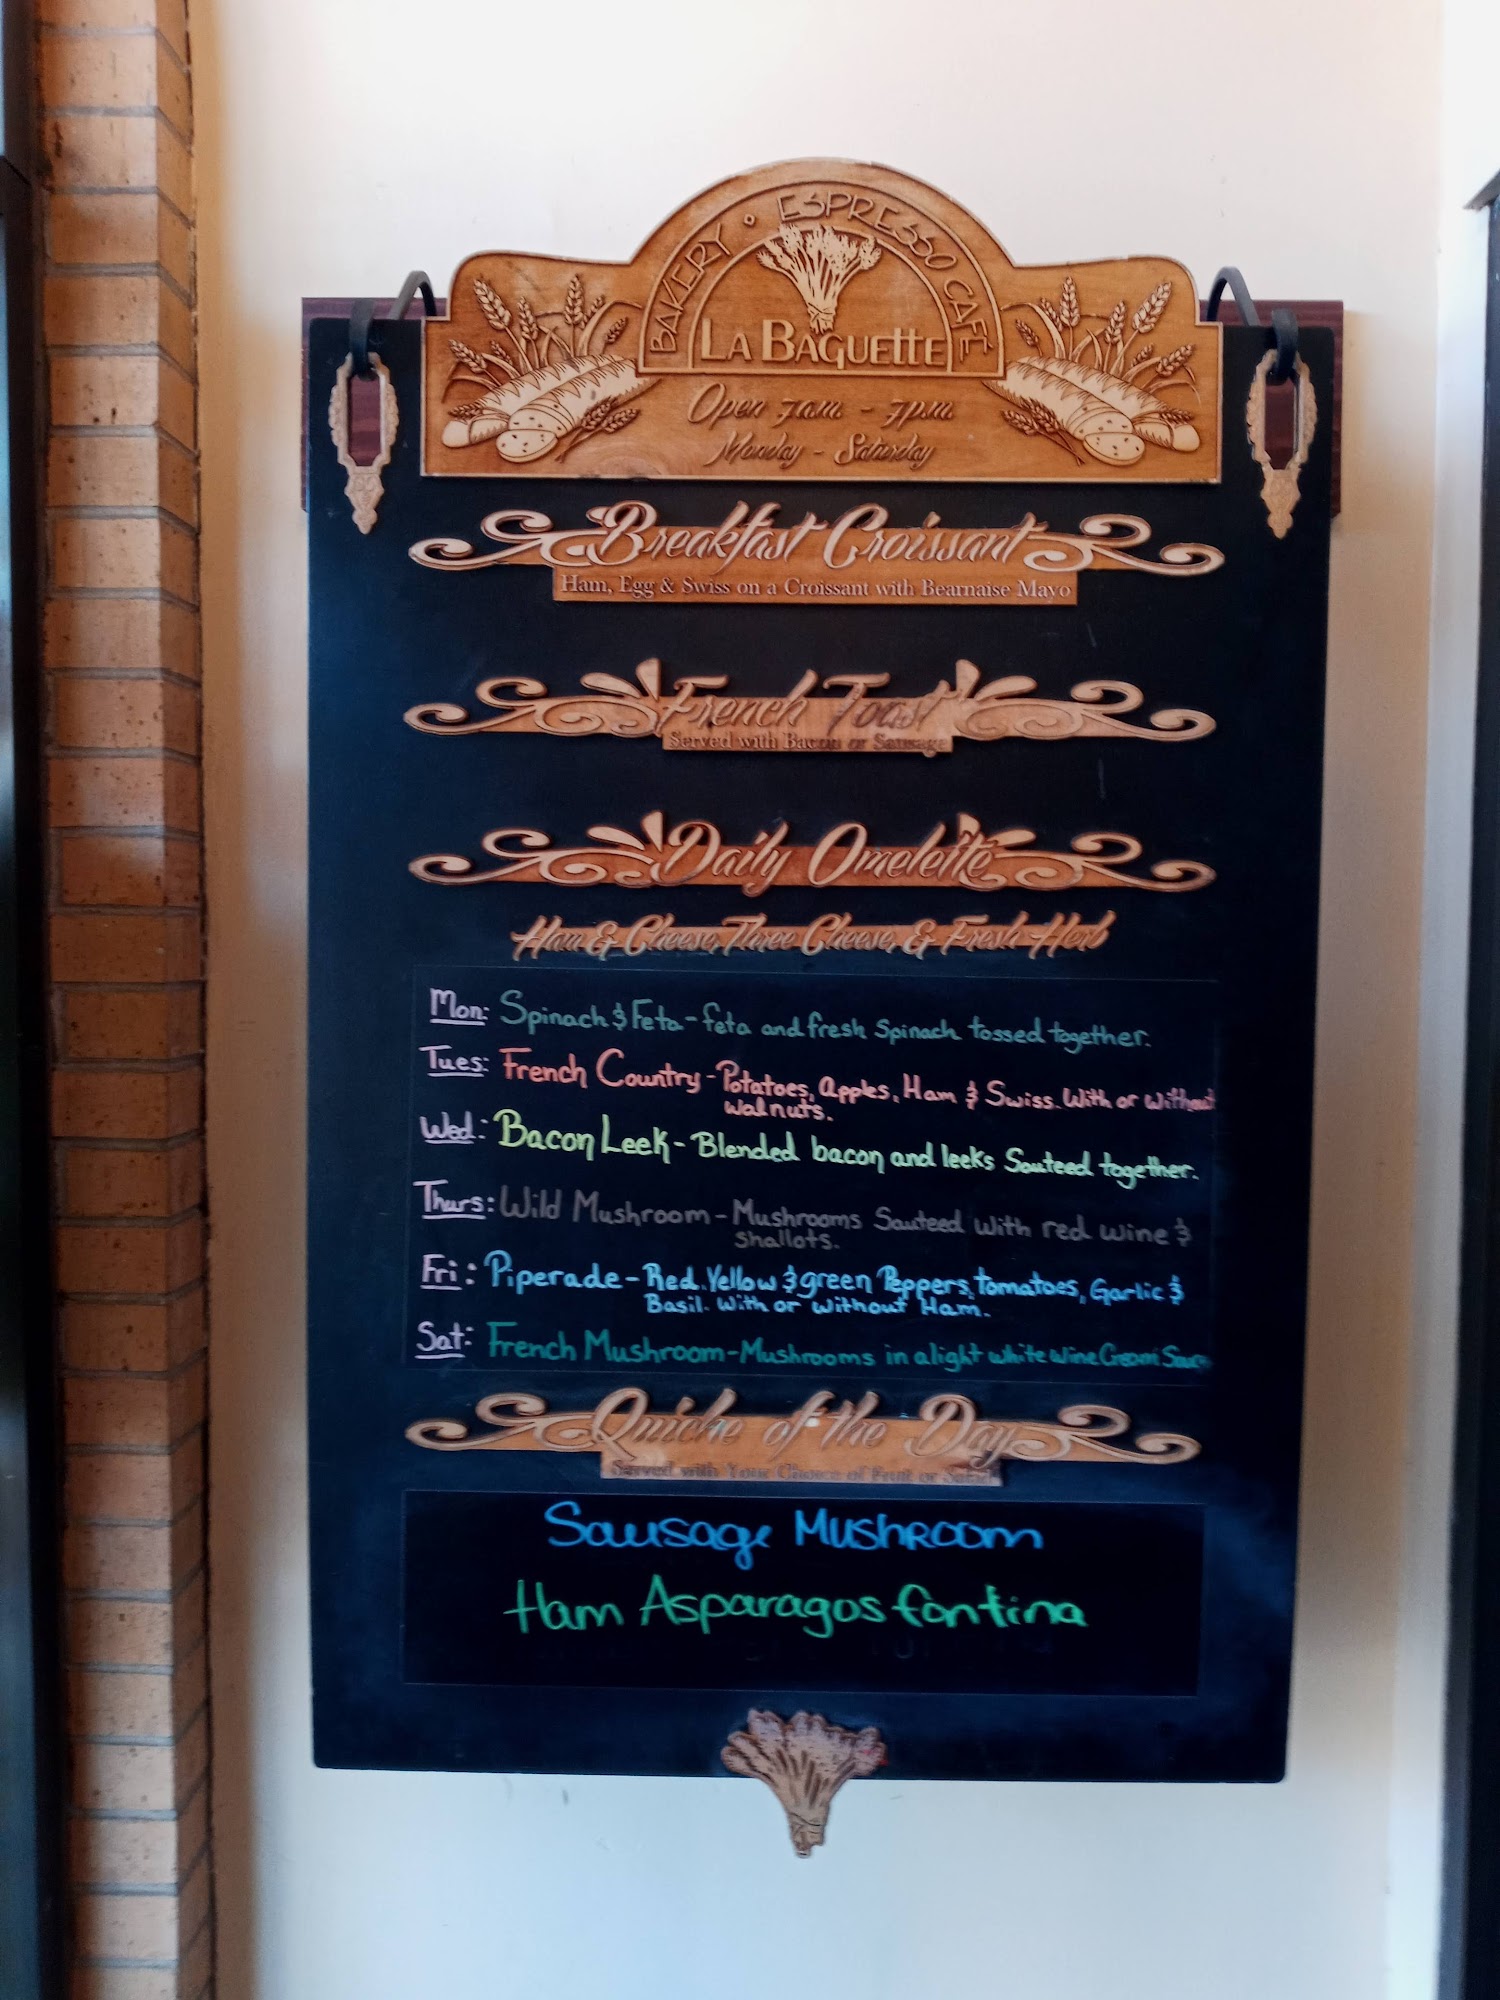 BAKERY • ESPRESSO CAFE
LA BAGUETTE
Open 7a.m. - 7p.m.
Monday - Saturday
Breakfast Croissant
Ham, Egg & Swiss on a Croissant with Bearnaise Mayo
French Toast
Served with Bacon or Sausage
Daily Omelette
Ham & Cheese, Three Cheese, & Fresh Herb
Mon: Spinach & Feta - feta and fresh spinach tossed together.
Tues: French Country - Potatoes, Apples, Ham & Swiss. With or without
walnuts.
Wed: Bacon Leek - Blended bacon and leeks Sauteed together.
Thurs: Wild Mushroom - Mushrooms Sauteed with red wine &
shallots.
Fri: Piperade - Red, Yellow & green Peppers, tomatoes, Garlic &
Basil. With or without Ham.
Sat: French Mushroom - Mushrooms in a light white wine Cream Sauce
Quiche of the Day
Served with Your Choice of Fruit or Salad
Sausage Mushroom
Ham Asparagos fontina